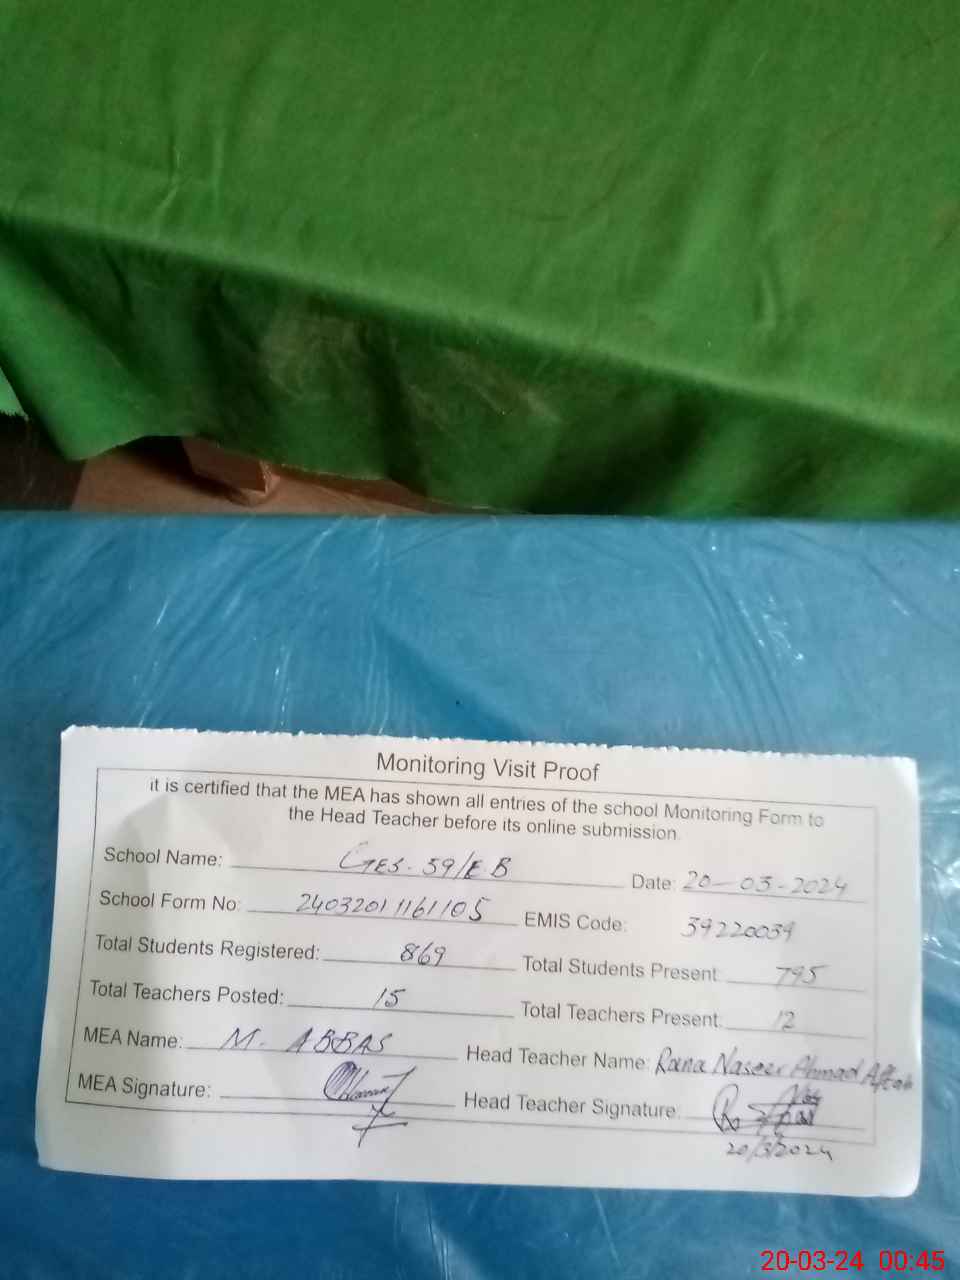 Monitoring Visit Proof
it is certified that the MEA has shown all entries of the school Monitoring Form to
the Head Teacher before its online submission.
School Name: GES. 59/E B Date: 20-03-2024
School Form No: 24032011161105 EMIS Code: 39220039
Total Students Registered: 869 Total Students Present: 795
Total Teachers Posted: 15 Total Teachers Present: 12
MEA Name: M. ABBAS Head Teacher Name: Rana Naseer Ahmad Aftab
MEA Signature: Head Teacher Signature:
20/3/2024
20-03-24 00:45